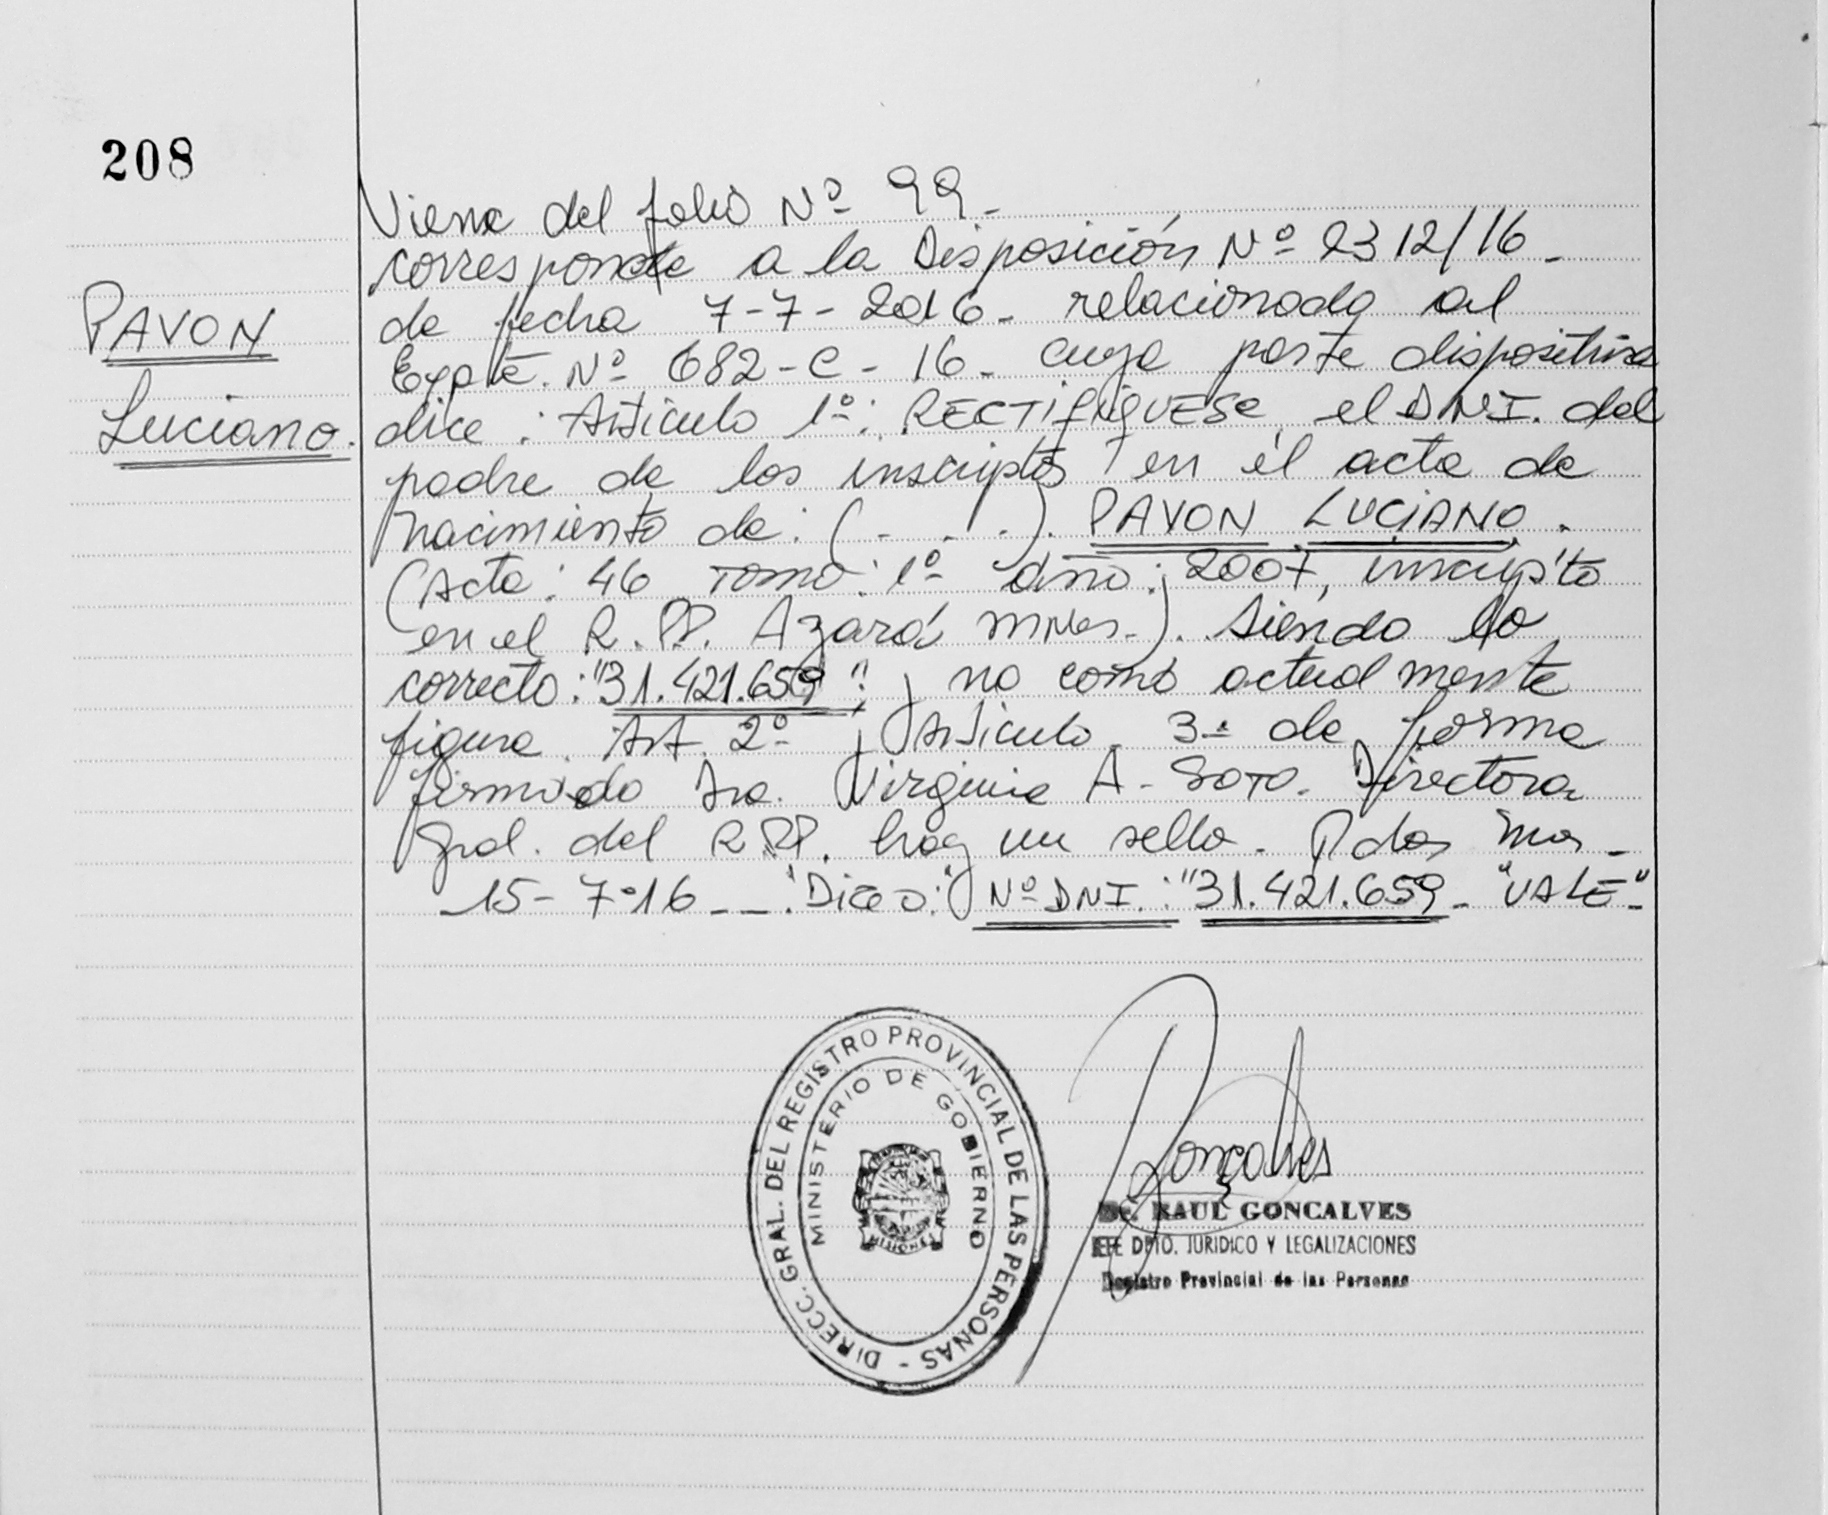 208
PAVON
Luciano.
Viene del folio Nº 99-
corresponde a la Disposición Nº 2312/16-
de fecha 7-7-2016- relacionada al
Expte. Nº 682-C-16- cuya parte dispositiva
dice: Artículo 1º: RECTIFIQUESE el DNI. del
padre de los inscriptos en el acta de
nacimiento de: (- - -). PAVON LUCIANO.
(Acta: 46 Tomo: 1º año: 2007, inscripto
en el R.PP. Azara Mnes.). Siendo lo
correcto: "31.421.659" y no como actualmente
figura. Art. 2º y Artículo 3º de forma
firmado Dra. Virginia A- Soto. Directora
Gral. del R.PP. hay un sello. Pdas Mns-
15-7-16-- "Digo:" Nº DNI.: "31.421.659- "VALE"-
DIRECC. GRAL. DEL REGISTRO PROVINCIAL DE LAS PERSONAS -
MINISTERIO DE GOBIERNO
MISIONES
Gonçalves
Dr. RAUL GONCALVES
JEFE DPTO. JURIDICO Y LEGALIZACIONES
Registro Provincial de las Personas